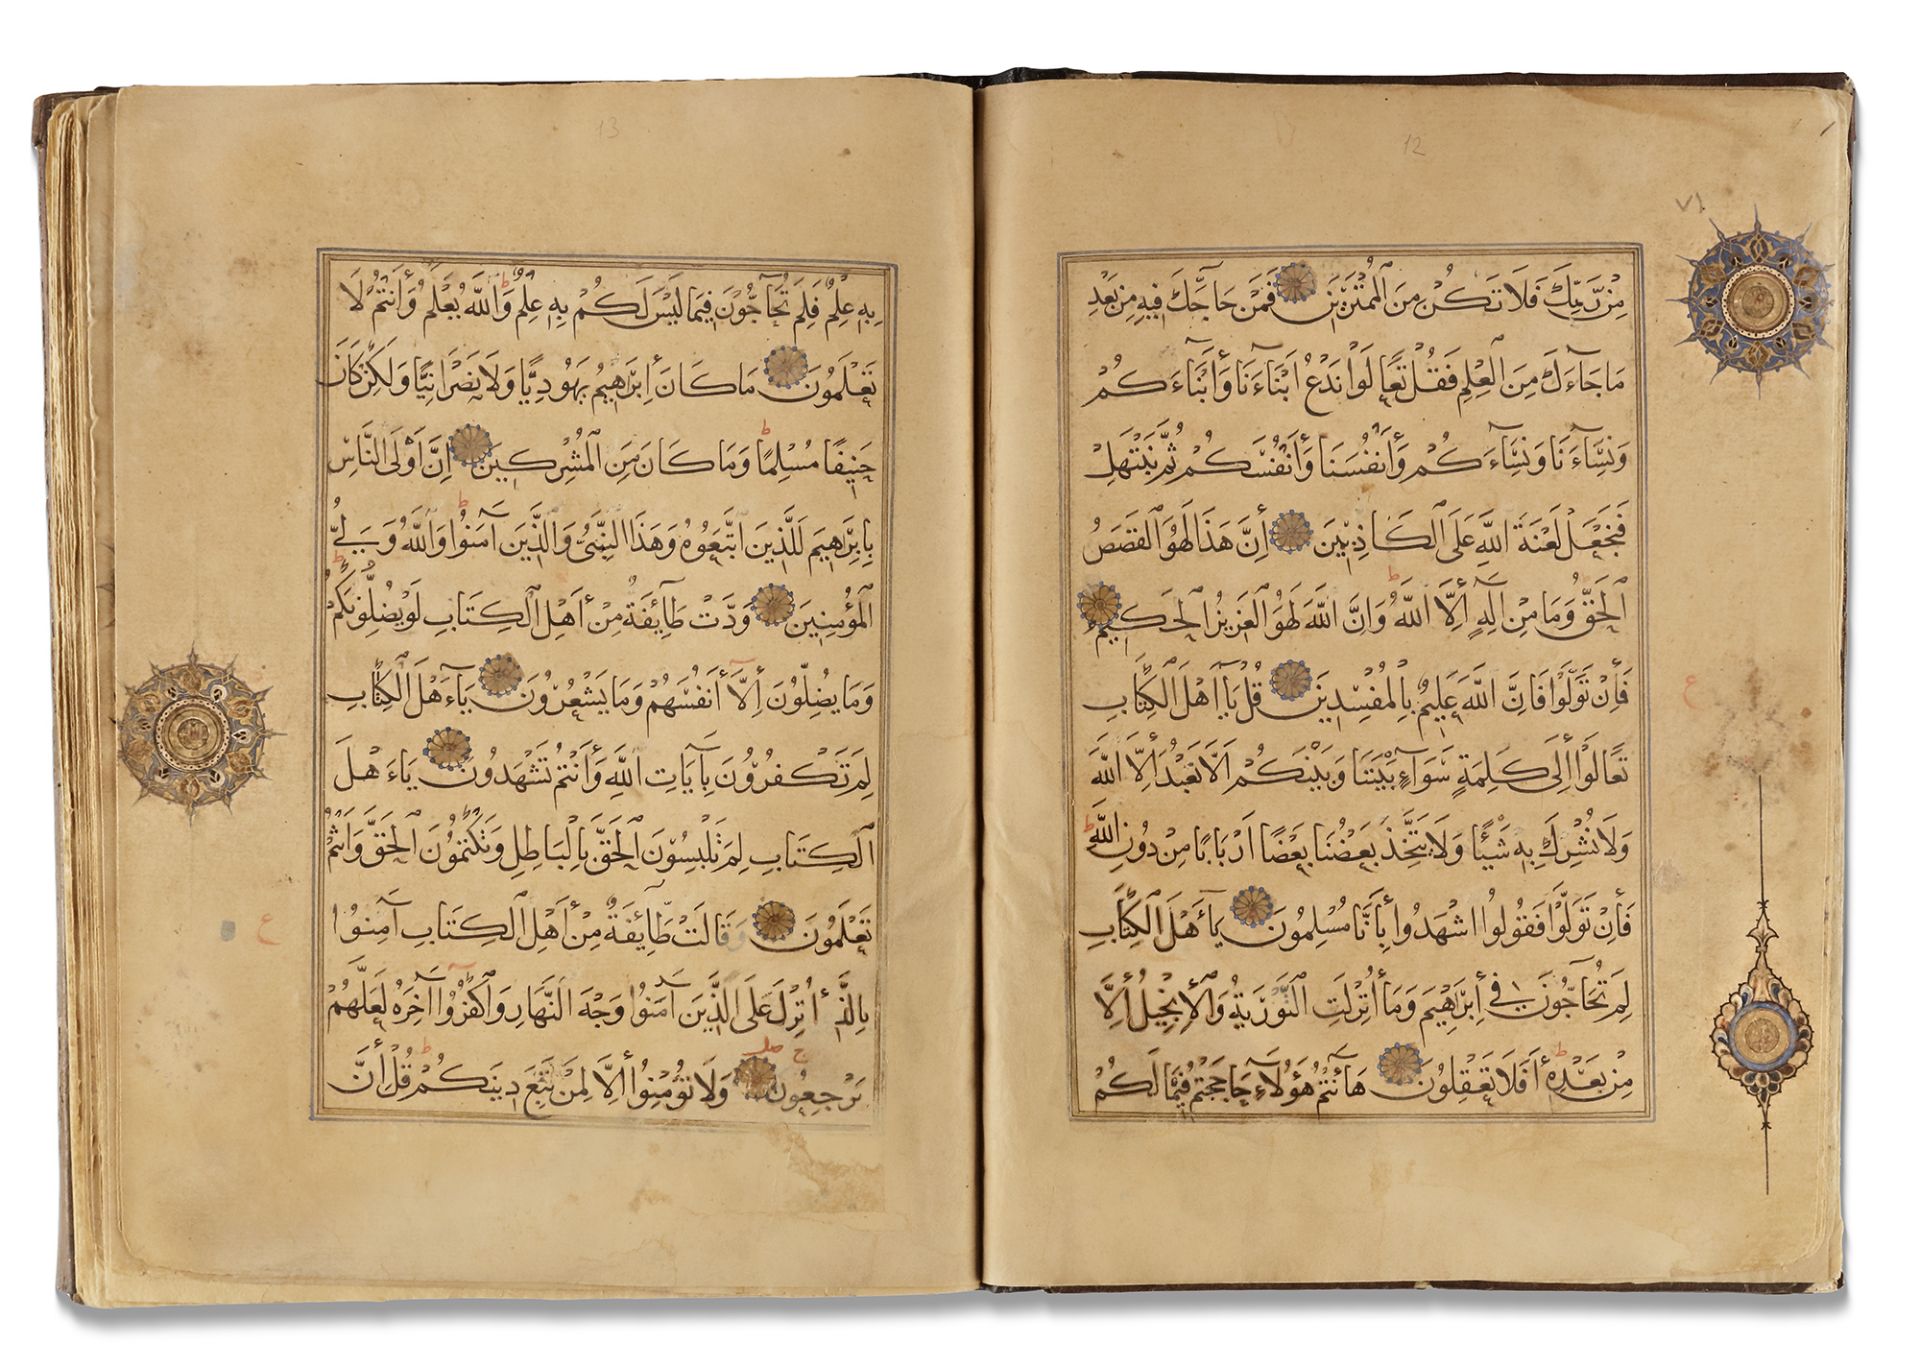 12
٧١
مِنْ رَبِّكَ فَلَا تَكُنْ مِنَ الْمُمْتَرِينَ فَمَنْ حَاجَّكَ فِيهِ مِنْ بَعْدِ
مَا جَآءَكَ مِنَ الْعِلْمِ فَقُلْ تَعَالَوْا نَدْعُ أَبْنَآءَنَا وَأَبْنَآءَكُمْ
وَنِسَآءَنَا وَنِسَآءَكُمْ وَأَنْفُسَنَا وَأَنْفُسَكُمْ ثُمَّ نَبْتَهِلْ
فَنَجْعَلْ لَعْنَةَ اللَّهِ عَلَى الْكَاذِبِينَ إِنَّ هَذَا لَهُوَ الْقَصَصُ
الْحَقُّ وَمَا مِنْ إِلَهٍ إِلَّا اللَّهُ وَإِنَّ اللَّهَ لَهُوَ الْعَزِيزُ الْحَكِيمُ
فَإِنْ تَوَلَّوْا فَإِنَّ اللَّهَ عَلِيمٌ بِالْمُفْسِدِينَ قُلْ يَا أَهْلَ الْكِتَابِ
تَعَالَوْا إِلَى كَلِمَةٍ سَوَآءٍ بَيْنَنَا وَبَيْنَكُمْ أَلَّا نَعْبُدَ إِلَّا اللَّهَ
وَلَا نُشْرِكَ بِهِ شَيْئًا وَلَا يَتَّخِذَ بَعْضُنَا بَعْضًا أَرْبَابًا مِنْ دُونِ اللَّهِ
فَإِنْ تَوَلَّوْا فَقُولُوا اشْهَدُوا بِأَنَّا مُسْلِمُونَ يَآ أَهْلَ الْكِتَابِ
لِمَ تُحَآجُّونَ فِي إِبْرَاهِيمَ وَمَا أُنْزِلَتِ التَّوْرَيةُ وَالْإِنْجِيلُ إِلَّا
مِنْ بَعْدِهِ أَفَلَا تَعْقِلُونَ هَآ أَنْتُمْ هَؤُلَآءِ حَاجَجْتُمْ فِيمَا لَكُمْ
ع
13
بِهِ عِلْمٌ فَلِمَ تُحَآجُّونَ فِيمَا لَيْسَ لَكُمْ بِهِ عِلْمٌ وَاللَّهُ يَعْلَمُ وَأَنْتُمْ لَا
تَعْلَمُونَ مَا كَانَ إِبْرَاهِيمُ يَهُودِيًّا وَلَا نَصْرَانِيًّا وَلَكِنْ كَانَ
حَنِيفًا مُسْلِمًا وَمَا كَانَ مِنَ الْمُشْرِكِينَ إِنَّ أَوْلَى النَّاسِ
بِإِبْرَاهِيمَ لَلَّذِينَ اتَّبَعُوهُ وَهَذَا النَّبِيُّ وَالَّذِينَ آمَنُوا وَاللَّهُ وَلِيُّ
الْمُؤْمِنِينَ وَدَّتْ طَآئِفَةٌ مِنْ أَهْلِ الْكِتَابِ لَوْ يُضِلُّونَكُمْ
وَمَا يُضِلُّونَ إِلَّآ أَنْفُسَهُمْ وَمَا يَشْعُرُونَ يَآءَهْلَ الْكِتَابِ
لِمَ تَكْفُرُونَ بِآيَاتِ اللَّهِ وَأَنْتُمْ تَشْهَدُونَ يَآءَهْلَ
الْكِتَابِ لِمَ تَلْبِسُونَ الْحَقَّ بِالْبَاطِلِ وَتَكْتُمُونَ الْحَقَّ وَأَنْتُمْ
تَعْلَمُونَ وَقَالَتْ طَآئِفَةٌ مِنْ أَهْلِ الْكِتَابِ آمِنُوا
بِالَّذِي أُنْزِلَ عَلَى الَّذِينَ آمَنُوا وَجْهَ النَّهَارِ وَاكْفُرُوا آخِرَهُ لَعَلَّهُمْ
يَرْجِعُونَ وَلَا تُؤْمِنُوا إِلَّا لِمَنْ تَبِعَ دِينَكُمْ قُلْ إِنَّ
ع